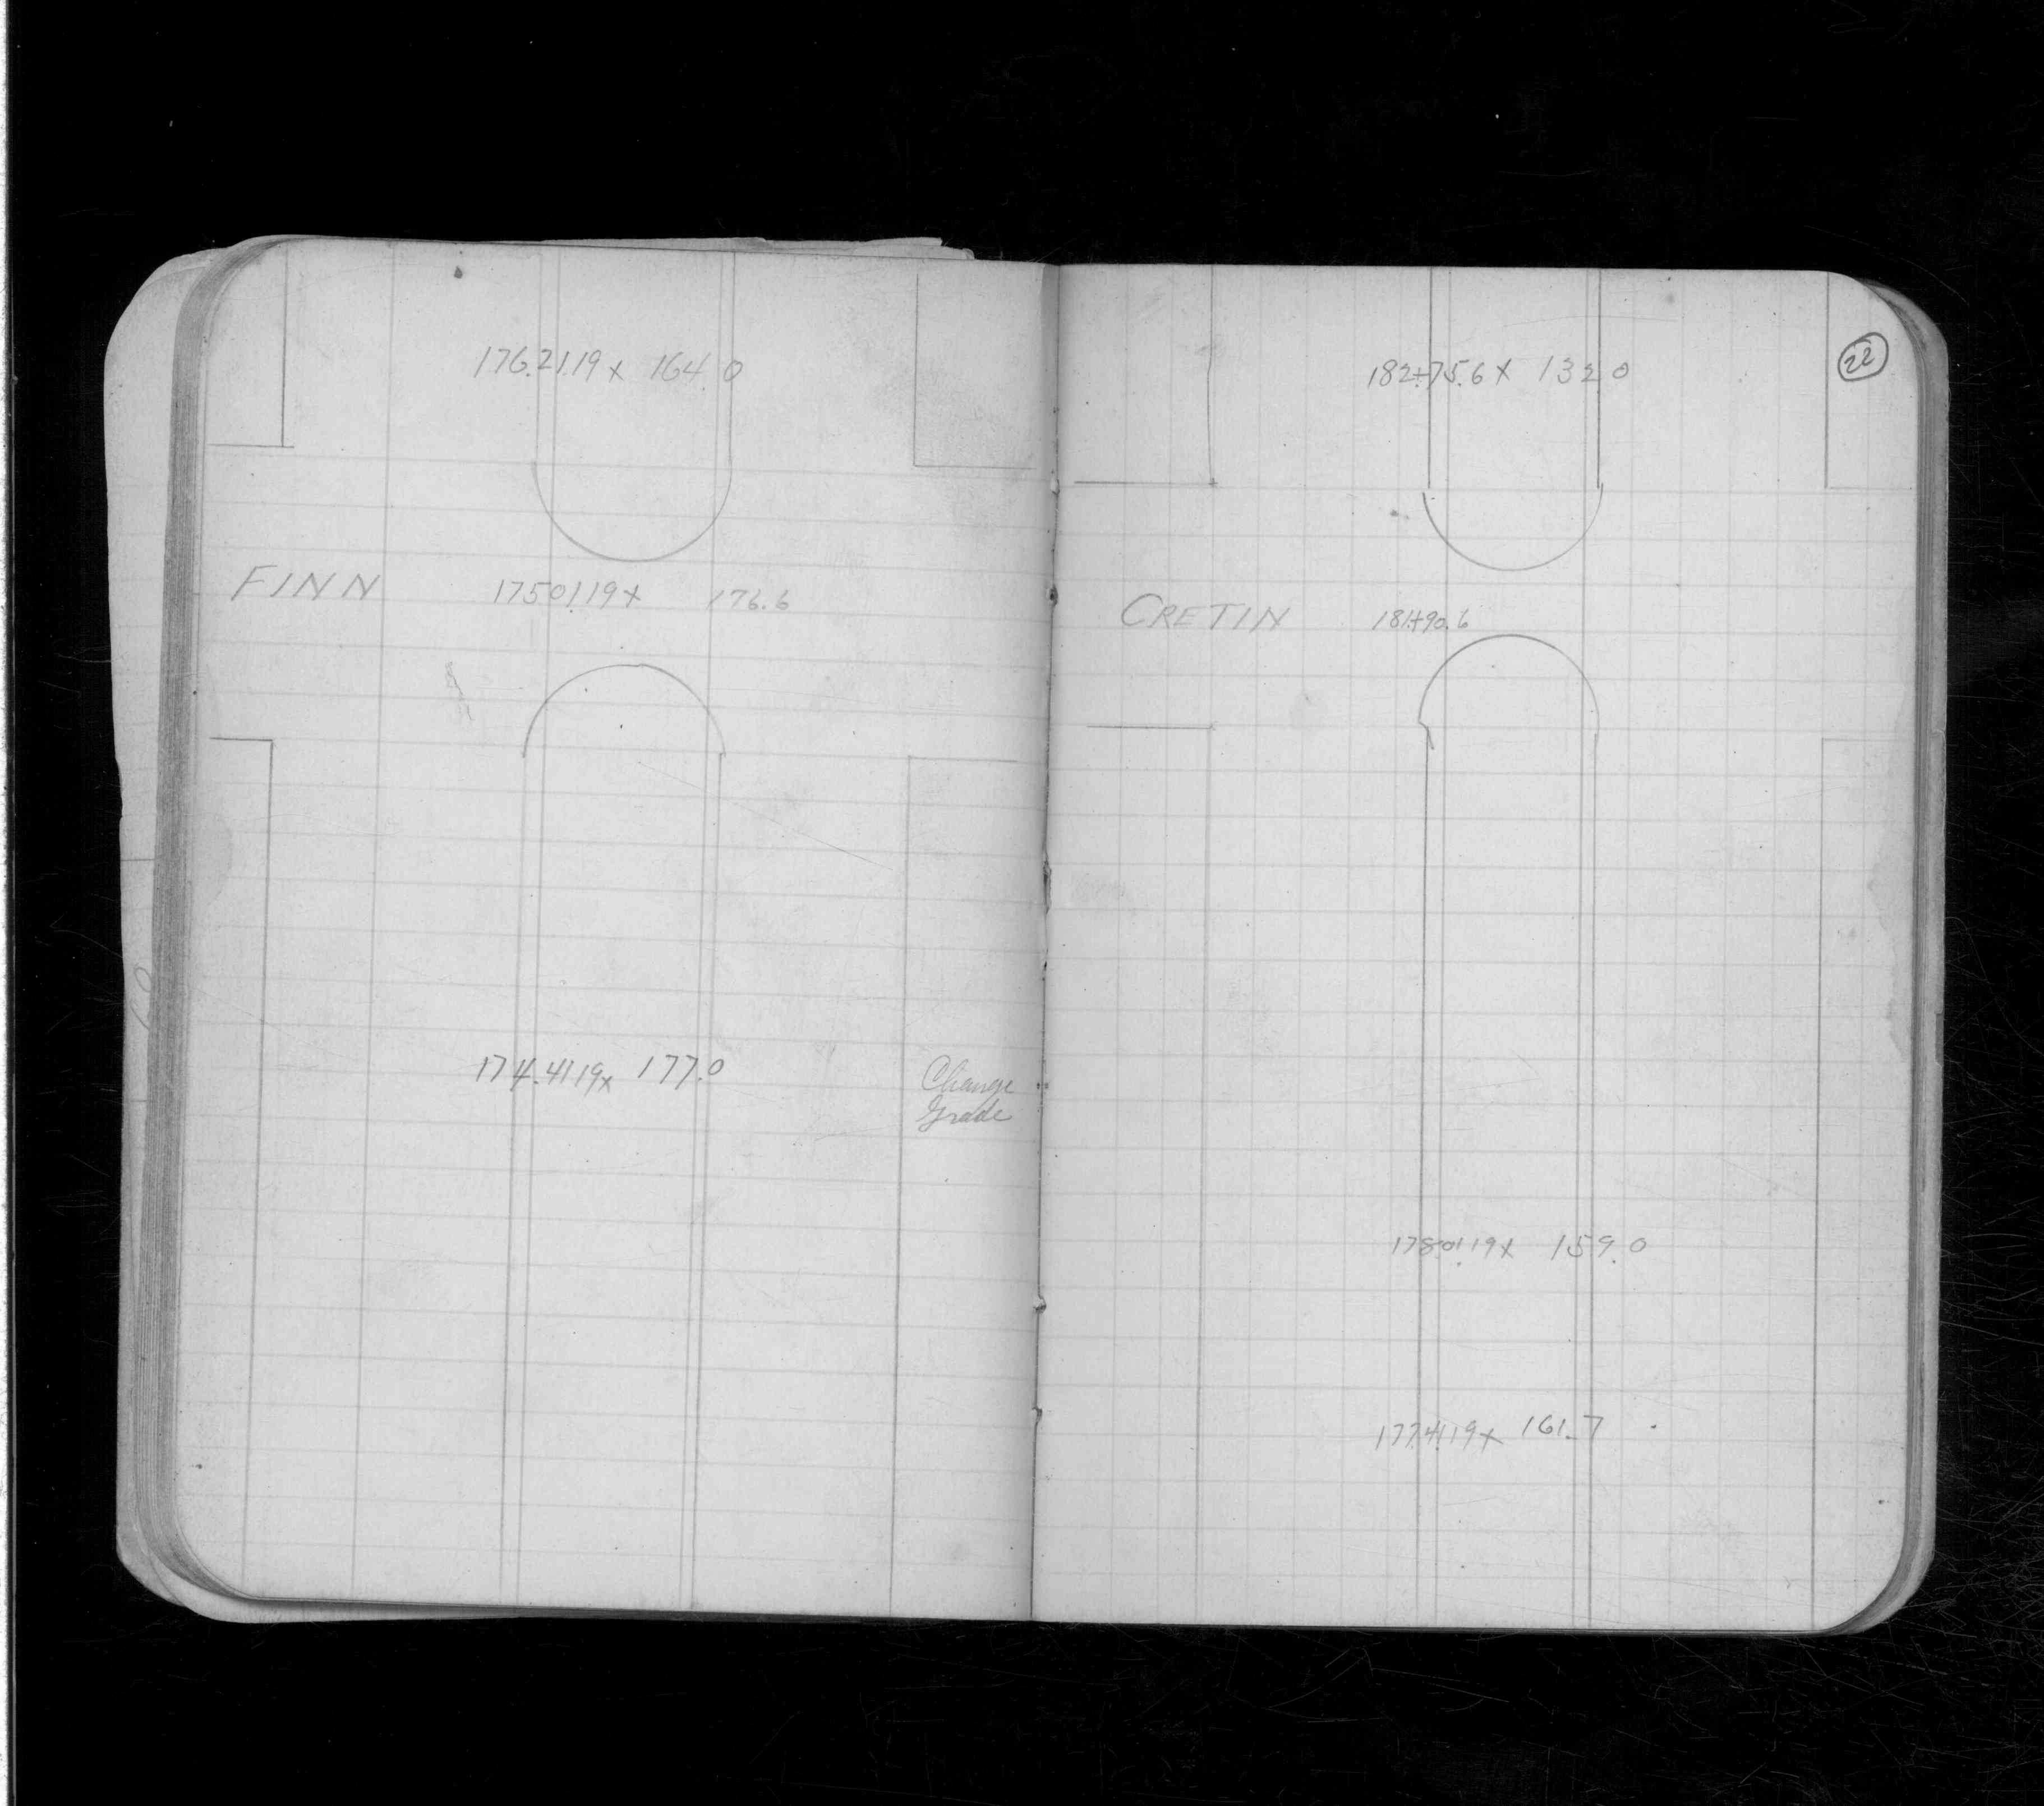 176.21.19 x 164.0
FINN 1750119 x 176.6
174.41 19x 177.0
Change
Grade
22
182+75.6 x 132 0
CRETIN 181+90.6
178.01 19 x 159.0
177.41.19 x 161.7